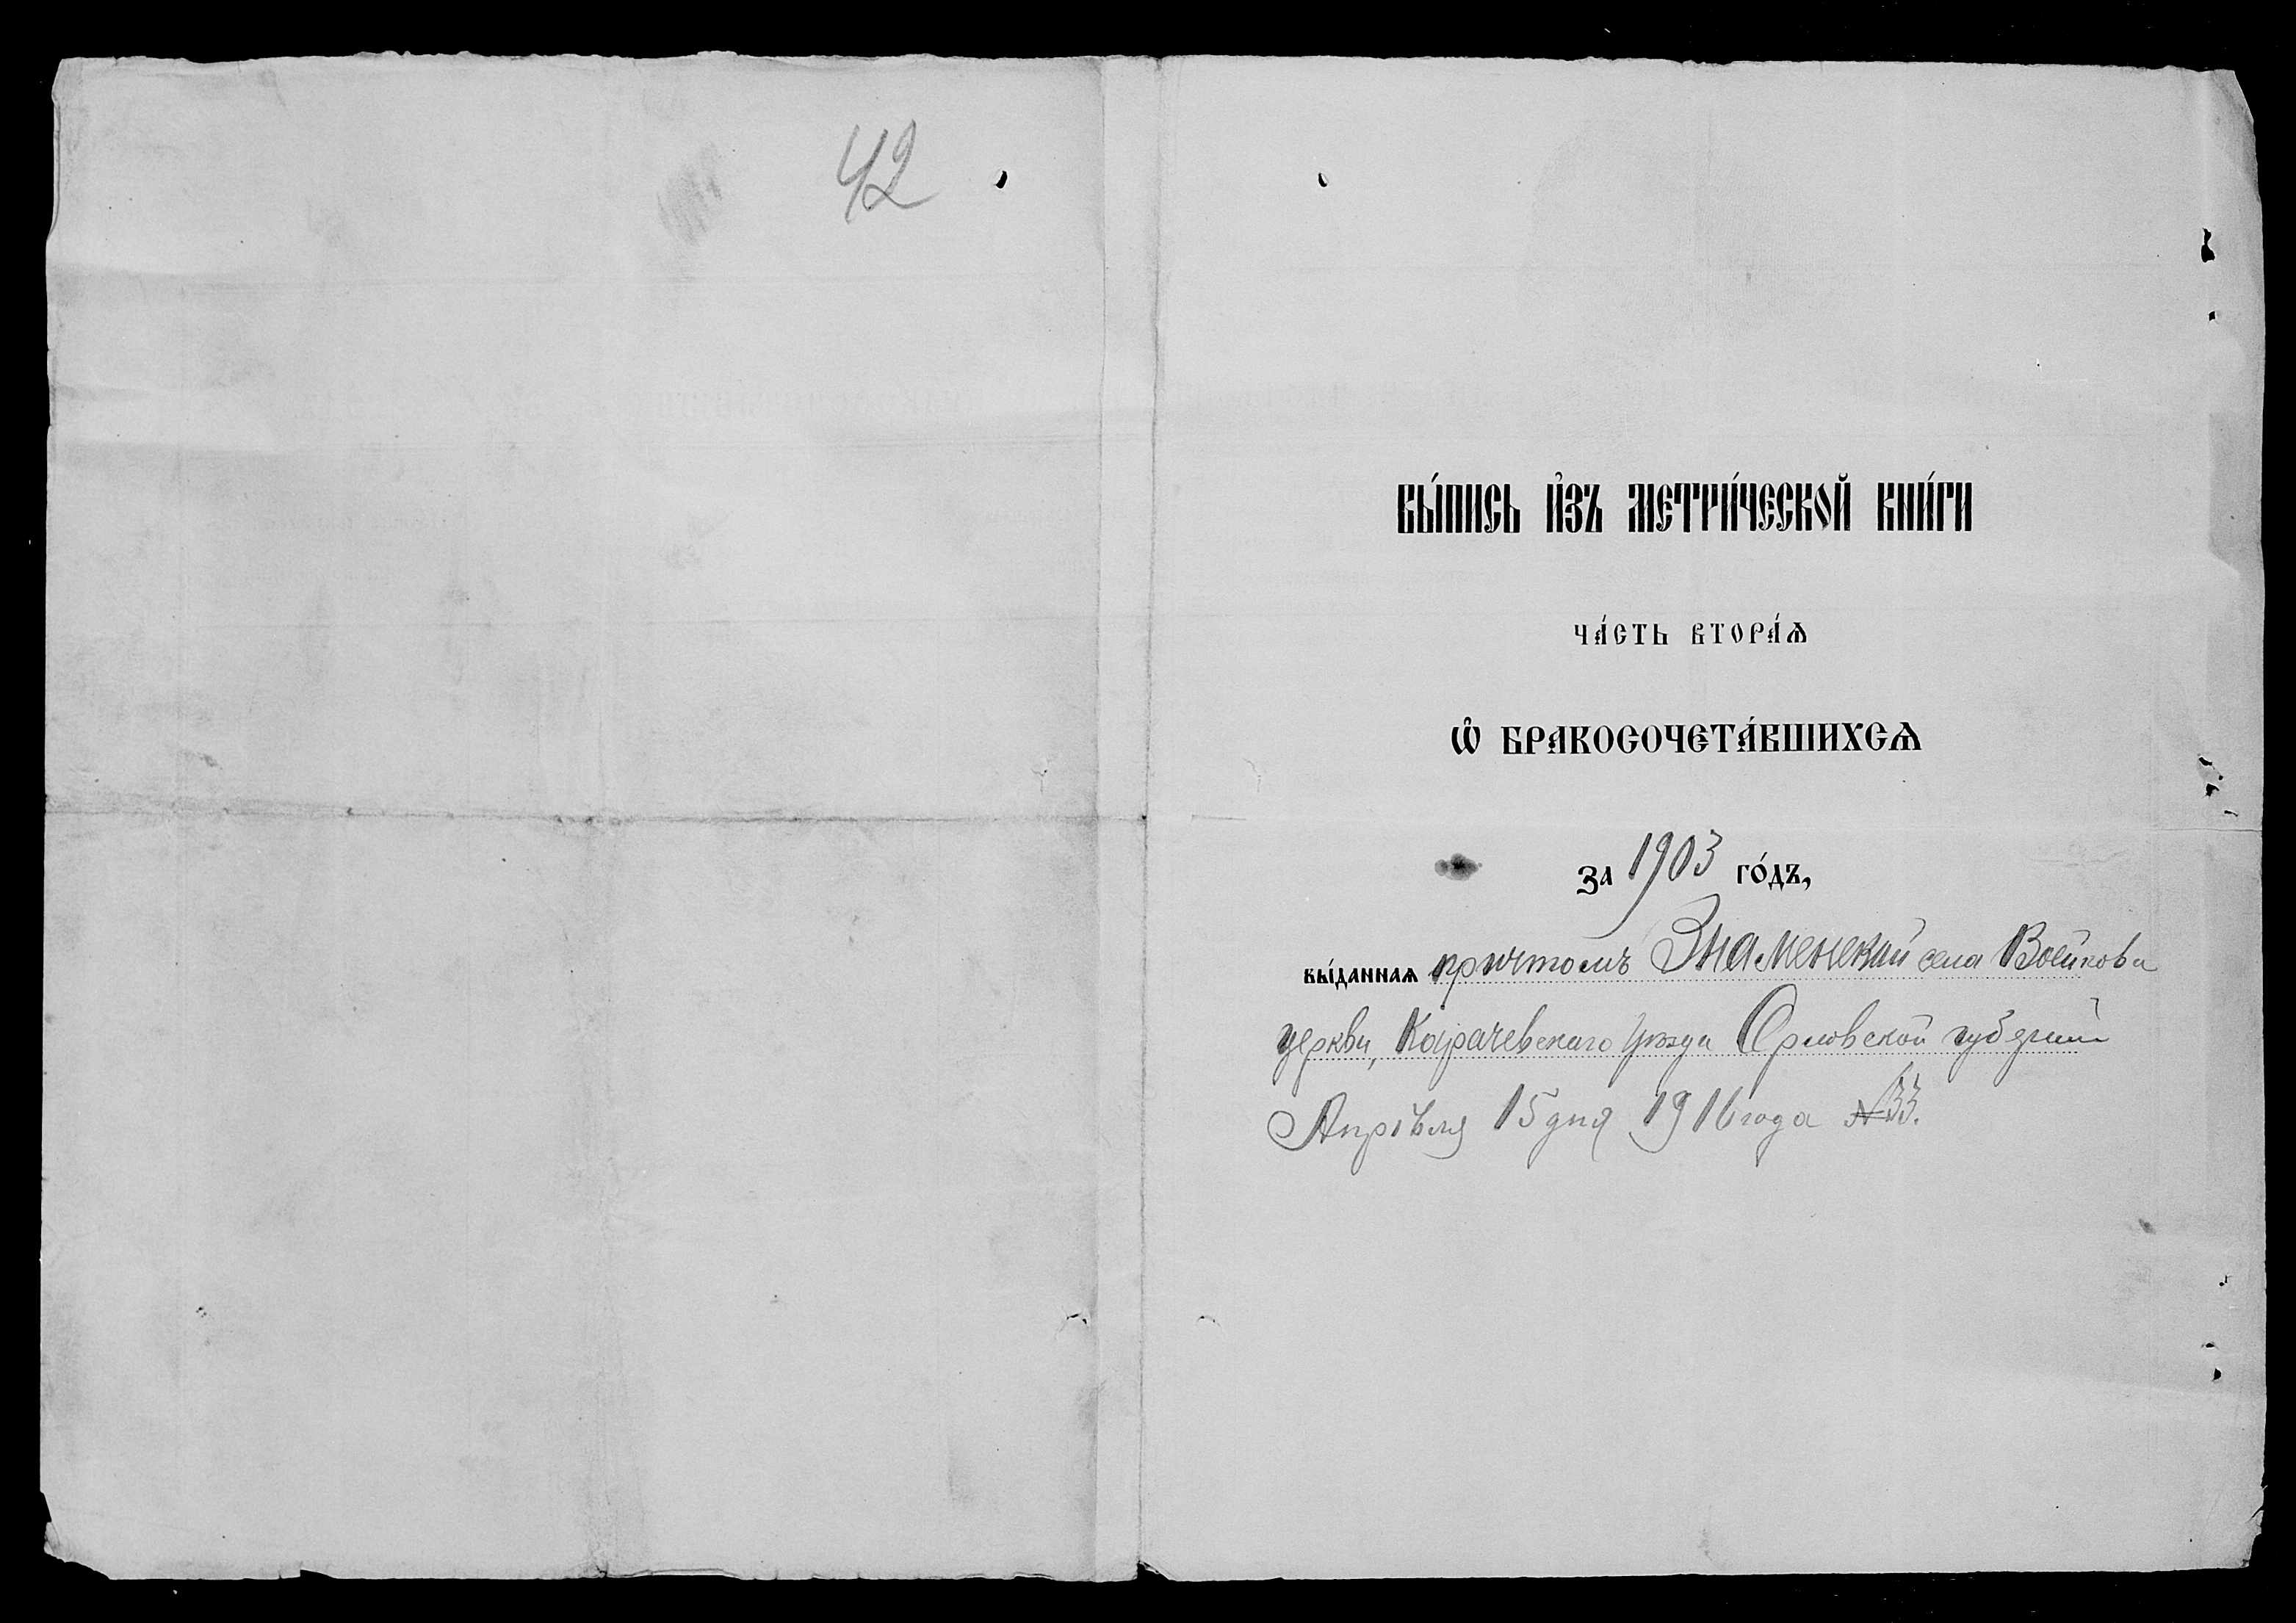 42
ВЫ́ПИСЬ И҆́ЗЪ МЕТРИ́ЧЕСКОЙ КНИ́ГИ
ЧА́СТЬ ВТОРА́Ѧ
Ѡ҆ БРАКОСОЧЕТА́ВШИХСѦ
ЗА 1903 ГО́ДЪ,
ВЫ́ДАННАѦ причтомъ Знаменской села Воейкова
церкви, Карачевскаго уѣзда Орловской губерніи
Апрѣля 15 дня 1916 года №33.